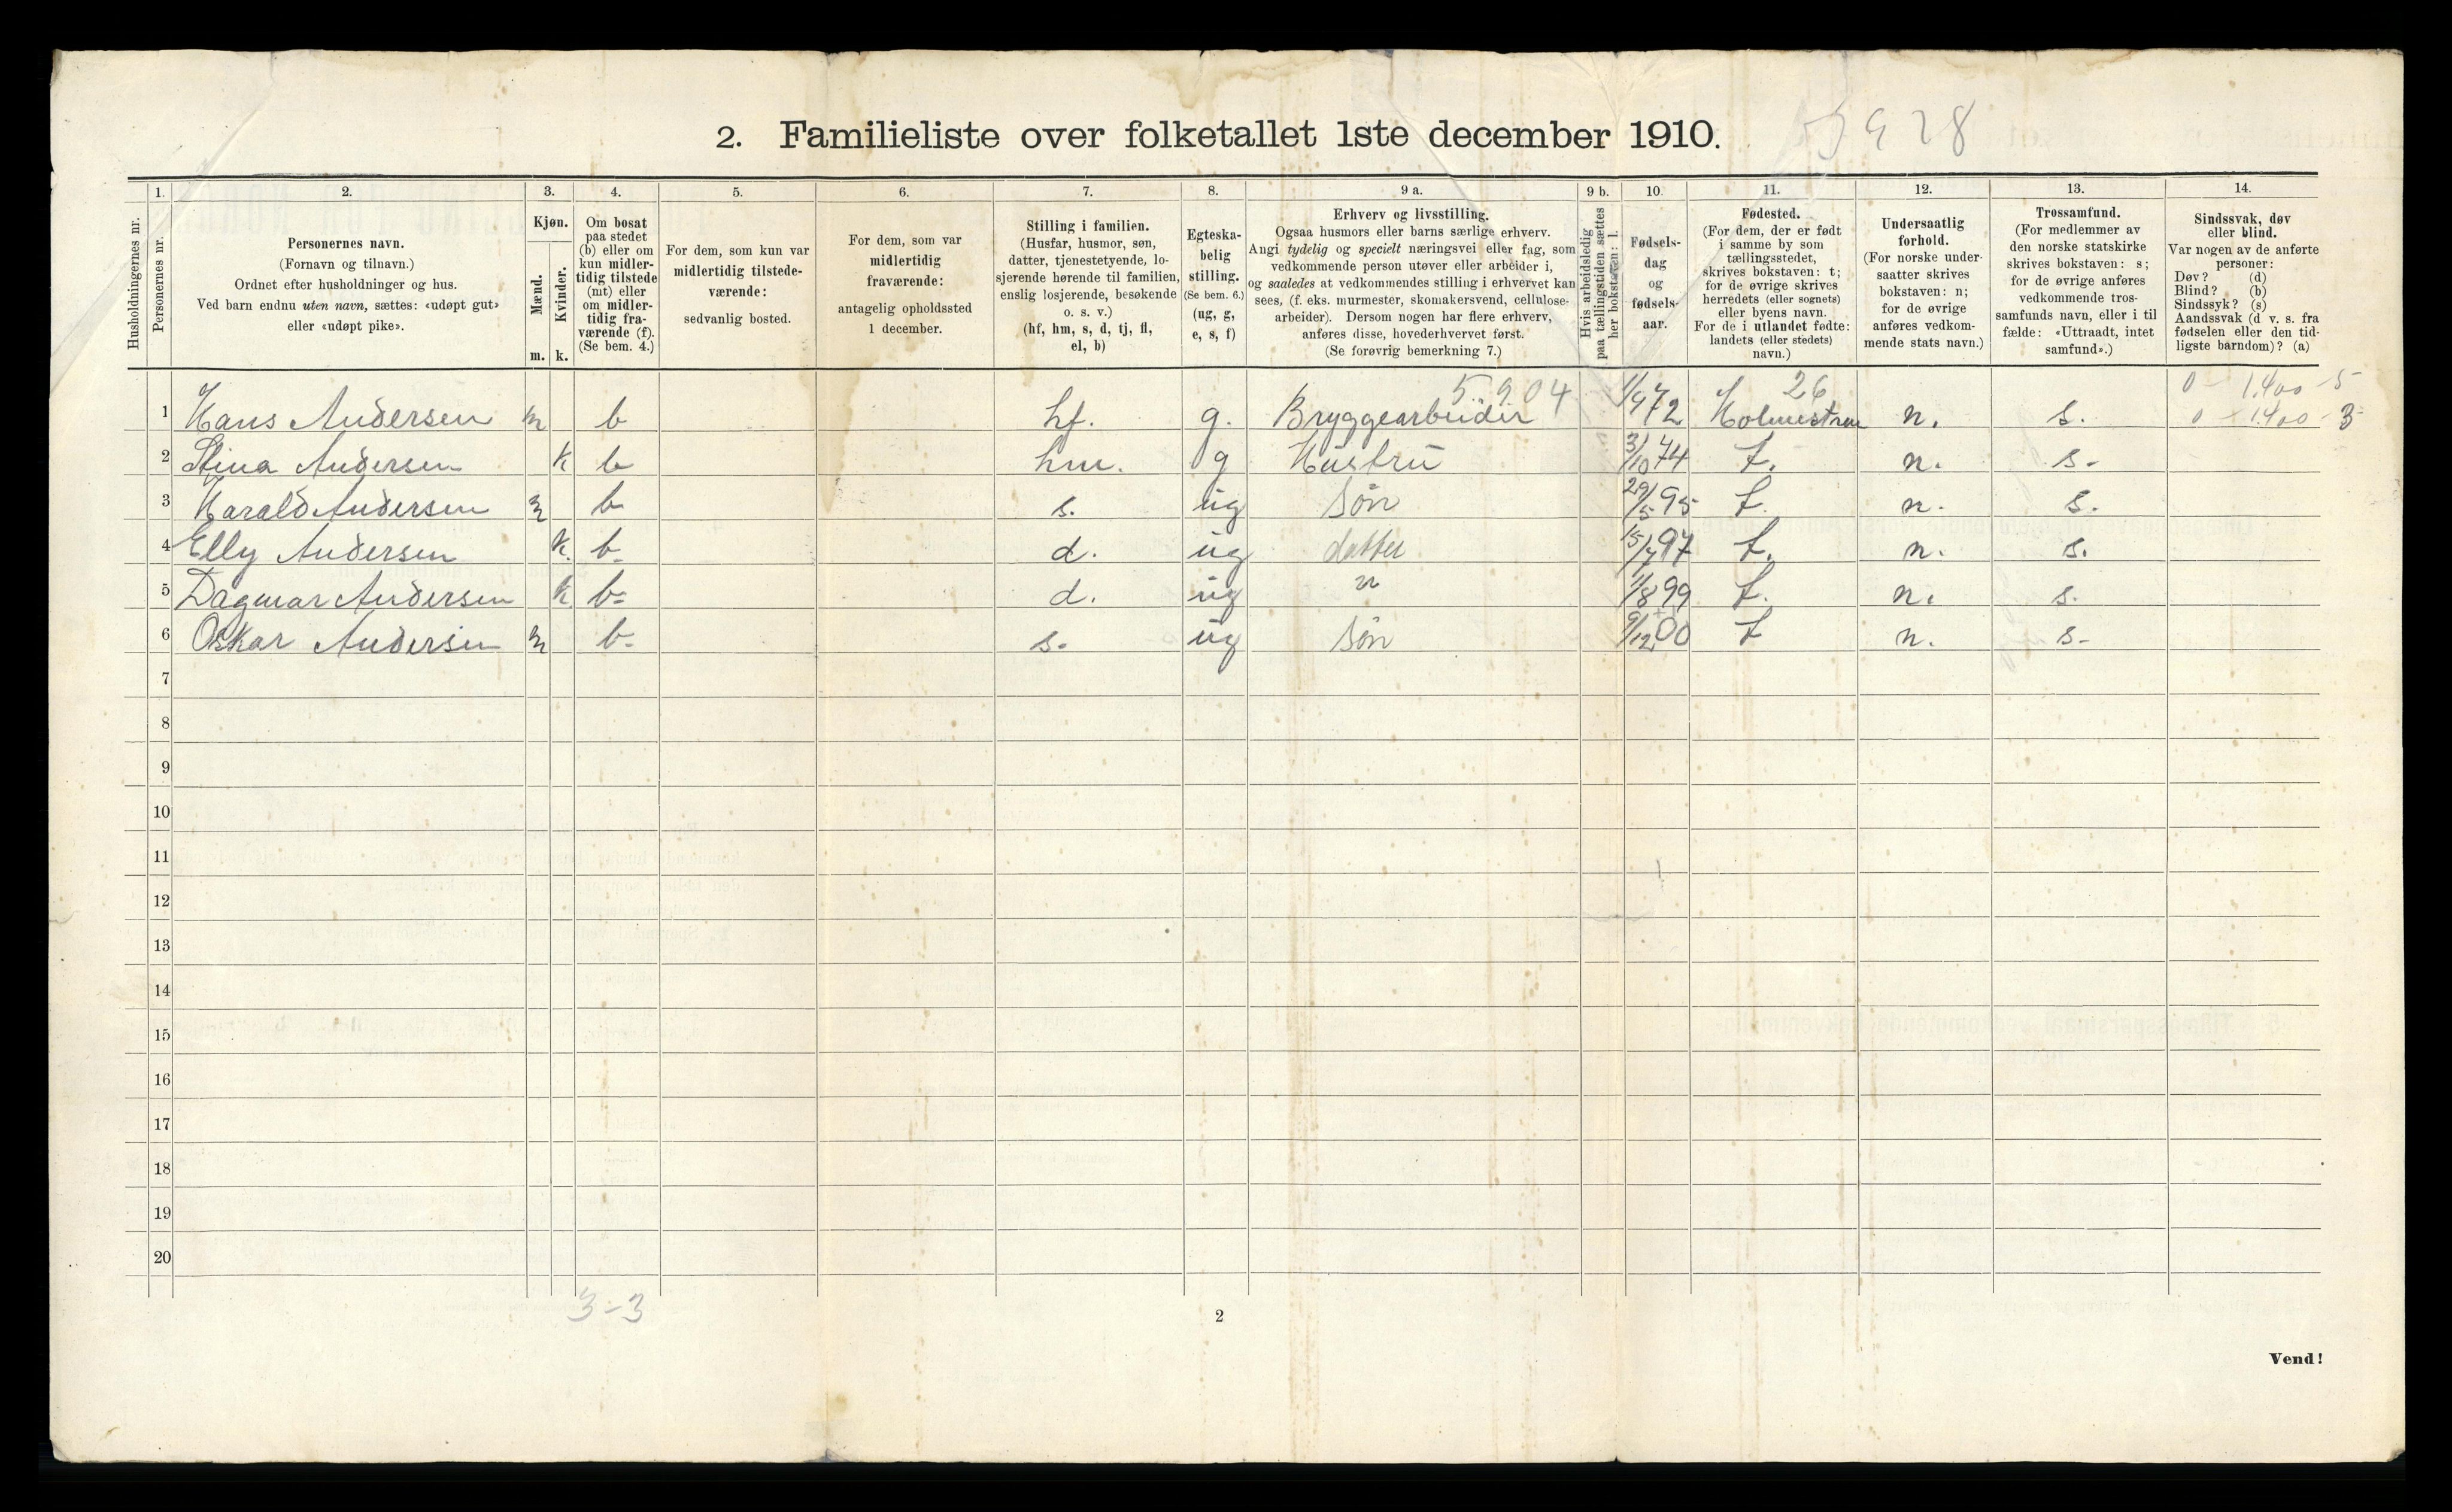 2. Familieliste over folketallet 1ste december 1910.
Husholdningernes nr.
1.
Personernes nr.
2.
Personernes navn.
(Fornavn og tilnavn.)
Ordnet efter husholdninger og hus.
Ved barn endnu uten navn, sættes: «udøpt gut»
eller «udøpt pike».
3.
Kjøn.
Mænd.
Kvinder.
m. k.
4.
Om bosat
paa stedet
(b) eller om
kun midler-
tidig tilstede
(mt) eller
om midler-
tidig fra-
værende (f).
(Se bem. 4.)
5.
For dem, som kun var
midlertidig tilstede-
værende:
sedvanlig bosted.
6.
For dem, som var
midlertidig
fraværende:
antagelig opholdssted
1 december.
7.
Stilling i familien.
(Husfar, husmor, søn,
datter, tjenestetyende, lo-
sjerende hørende til familien,
enslig losjerende, besøkende
o. s. v.)
(hf, hm, s, d, tj, fl,
el, b)
8.
Egteska-
belig
stilling.
(Se bem. 6.)
(ug, g,
e, s, f)
9 a.
Erhverv og livsstilling.
Ogsaa husmors eller barns særlige erhverv.
Angi tydelig og specielt næringsvei eller fag, som
vedkommende person utøver eller arbeider i,
og saaledes at vedkommendes stilling i erhvervet kan
sees, (f. eks. murmester, skomakersvend, cellulose-
arbeider). Dersom nogen har flere erhverv,
anføres disse, hovederhvervet først.
(Se forøvrig bemerkning 7.)
9 b.
Hvis arbeidsledig
paa tællingstiden sættes
her bokstaven: l.
10.
Fødsels-
dag
og
fødsels-
aar.
11.
Fødested.
(For dem, der er født
i samme by som
tællingsstedet,
skrives bokstaven: t;
for de øvrige skrives
herredets (eller sognets)
eller byens navn.
For de i utlandet fødte:
landets (eller stedets)
navn.)
12.
Undersaatlig
forhold.
(For norske under-
saatter skrives
bokstaven: n;
for de øvrige
anføres vedkom-
mende stats navn.)
13.
Trossamfund.
(For medlemmer av
den norske statskirke
skrives bokstaven: s;
for de øvrige anføres
vedkommende tros-
samfunds navn, eller i til
fælde: «Uttraadt, intet
samfund».)
14.
Sindssvak, døv
eller blind.
Var nogen av de anførte
personer:
Døv? (d)
Blind? (b)
Sindssyk? (s)
Aandssvak (d v. s. fra
fødselen eller den tid-
ligste barndom)? (a)
5904 26 0 - 1.400 - 5
1 Hans Andersen m b hf. g. Bryggearbeider 72 n. s. 0 - 1400 - 3
2 Stina Andersen k b hm. g Hustru 3/10 74 t. n. s-
3 Harald Andersen m b s. ug søn 29/5 95 t. n. s.
4 Elly Andersen k. b- d. ug datter 97 t. n. s.
5 Dagmar Andersen k b- d. ug " 1/8 99 t. n. s.
6 Oskar Andersen m b- s. ug søn 9/12 00 t n. s-
7
8
9
10
11
12
13
14
15
16
17
18
19
20
3-3
2
Vend!